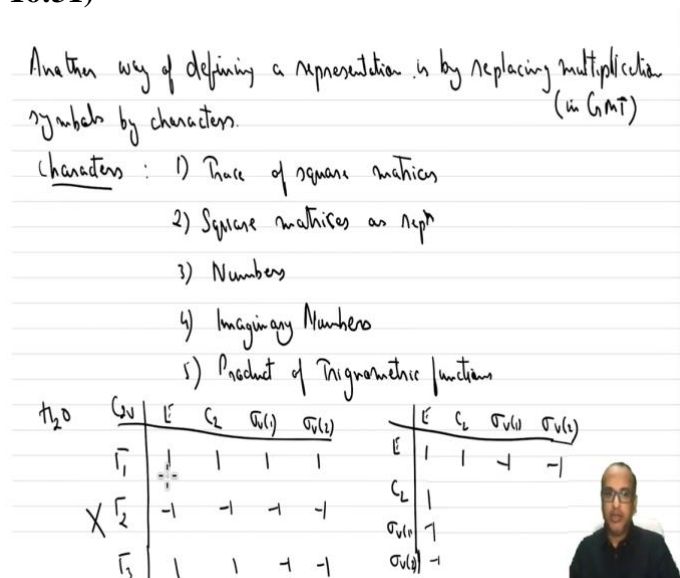 10:31)
Another way of defining a representation is by replacing multiplication
(in GMT)
symbols by characters.
Characters : 1) Trace of square matrices
2) Square matrices as repn
3) Numbers
4) Imaginary Numbers
5) Product of Trignometric functions
H2O C2v E C2 σv(1) σv(2)
Γ1 1 1 1 1
X Γ2 -1 -1 -1 -1
Γ3 1 1 -1 -1
E C2 σv(1) σv(2)
E 1 1 -1 -1
C2 1
σv(1) -1
σv(2) -1